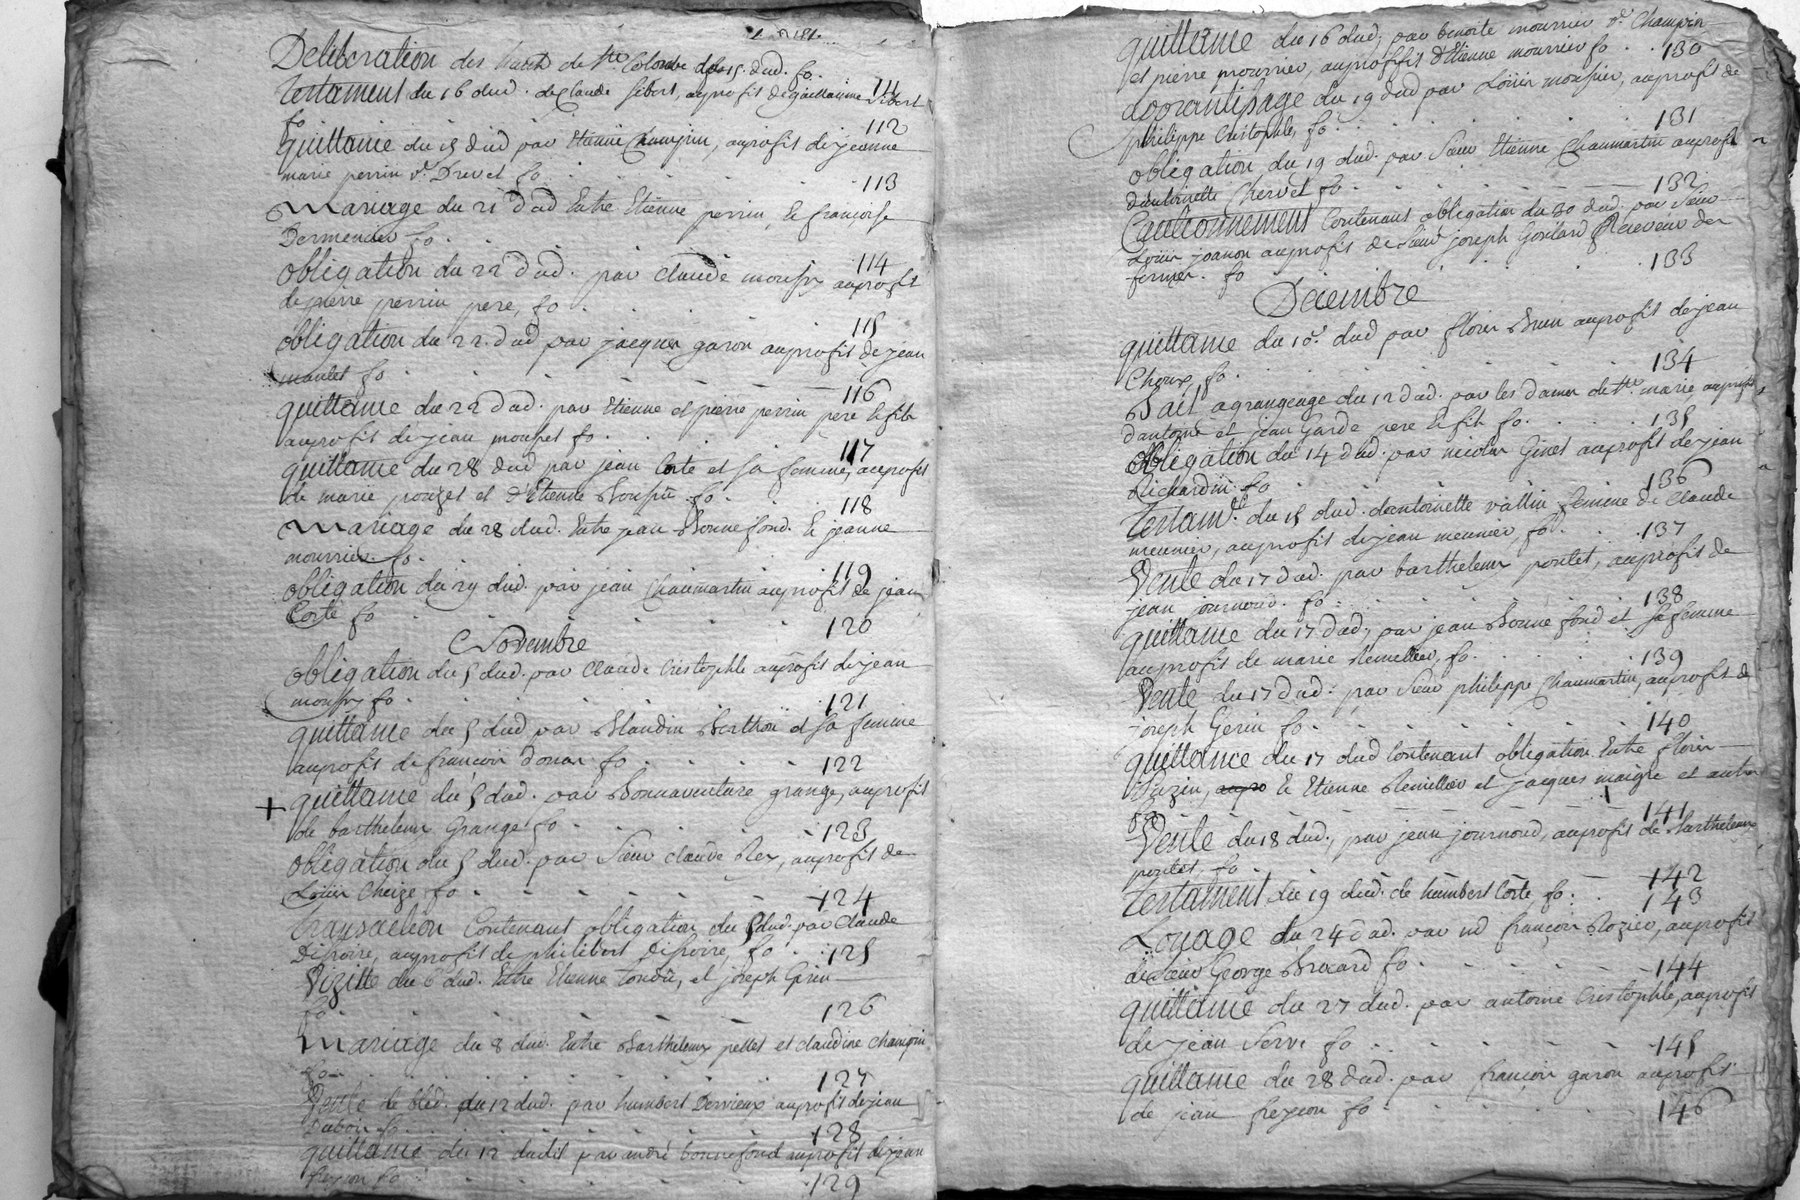 Deliberation des de Ste Colombe du 15. dud. fo. 111
Testament du 16 dud. de Claude Sibert, auprofit de guillaume Sibert
fo 112
quittance du 15 dud par Etienne Champin, auprofit de jeanne
marie perrin ve. Drevet fo 113
Mariage du 21 dud Entre Etienne perrin, & françoise
Dermenier fo. 114
obligation du 22 dud. par claude auprofit
de pierre perrin pere, fo 115
obligation du 22. dud par jacques garon auprofit de jean
fo 116
quittance du 22 dud. par Etienne et pierre perrin pere & fils
auprofit de jean fo. 117
quittance du 28 dud par jean Corte et sa femme, auprofit
de marie pouzet et d'Etienne fo. 118
Mariage du 28 dud. Entre jean Bonnefond. & jeanne
mourrier. fo. 119
obligation du 29 dud. par jean Chaumartin auprofit de jean
Corte fo 120
Novembre
obligation du 5 dud. par Claude Cristophle auprofit de jean
fo 121
quittance du 5 dud par Blandin et sa femme
auprofit de françois fo 122
+ quittance du 5 dud. par Bonnaventure grange, auprofit
de barthelemy Grange fo 123
obligation du 5 dud. par Sieur claude Rey, auprofit de
Loüis Cheize fo 124
transaction Contenant obligation du 5 dud. par Claude
auprofit de philibert fo 125
Vizitte du 6 dud. Entre Etienne et joseph
fo. 126
Mariage du 8 dud. Entre Barthelemy pellet et claudine champin
fo 127
Vente de bled. du 12 dud. par humbert Dervieux auprofit de jean
Dubon fo 128
quittance du 12 dudit par andré bonnefond auprofit de jean
fo 129
quittance du 16 dud. par benoite mourrier ve. Champin
et pierre mourrier, auproffit d'Etienne mourrier fo 130
du 19 dud par Loüis auprofit de
philippe Cristophle, fo 131
obligation du 19 dud. par Sieur Etienne Chaumartin auprofit
d'antoinette Chervet fo 132
Cautionnement Contenant obligation du 30 dud. par Sieur
Loüis joanon auprofit de Sieur joseph Receveur des
fermes. fo 133
Decembre
quittance du 10e dud par floris auprofit de jean
fo. 134
Bail agrangeage du 12 dud. par les dames de Ste marie auprofit
d'antoine et jean Garde pere & fils fo. 135
obligation du 14 dud. par nicolas Ginet auprofit de jean
Richardin fo 136
testamt. du 15 dud. dantoinette vallin femme de Claude
meunier, auprofit de jean meunier, fo. 137
Vente du 17 dud. par barthelemy pontet, auprofit de
jean journoud. fo 138
quittance du 17 dud, par jean Bonnefond et sa femme
auprofit de marie Remillier, fo. 139
Vente du 17 dud. par Sieur philippe Chaumartin, auprofit de
joseph Gerin fo 140
quittance du 17 dud Contenant obligation Entre floris
& Etienne Remillier et jacques maigre et autre
fo 141
Vente du 18 dud., par jean journoud, auprofit de Barthelemy
pontet, fo 142
testament du 19 dud. de humbert Corte fo. 143
Loüage du 24 dud. par nd françois Rozier, auprofit
de Sieur George Brocard fo 144
quittance du 27 dud. par antoine Cristophle, auprofit
de jean Serve fo 145
quittance du 28 dud. par françois garon auprofit
de jean freycon fo 146